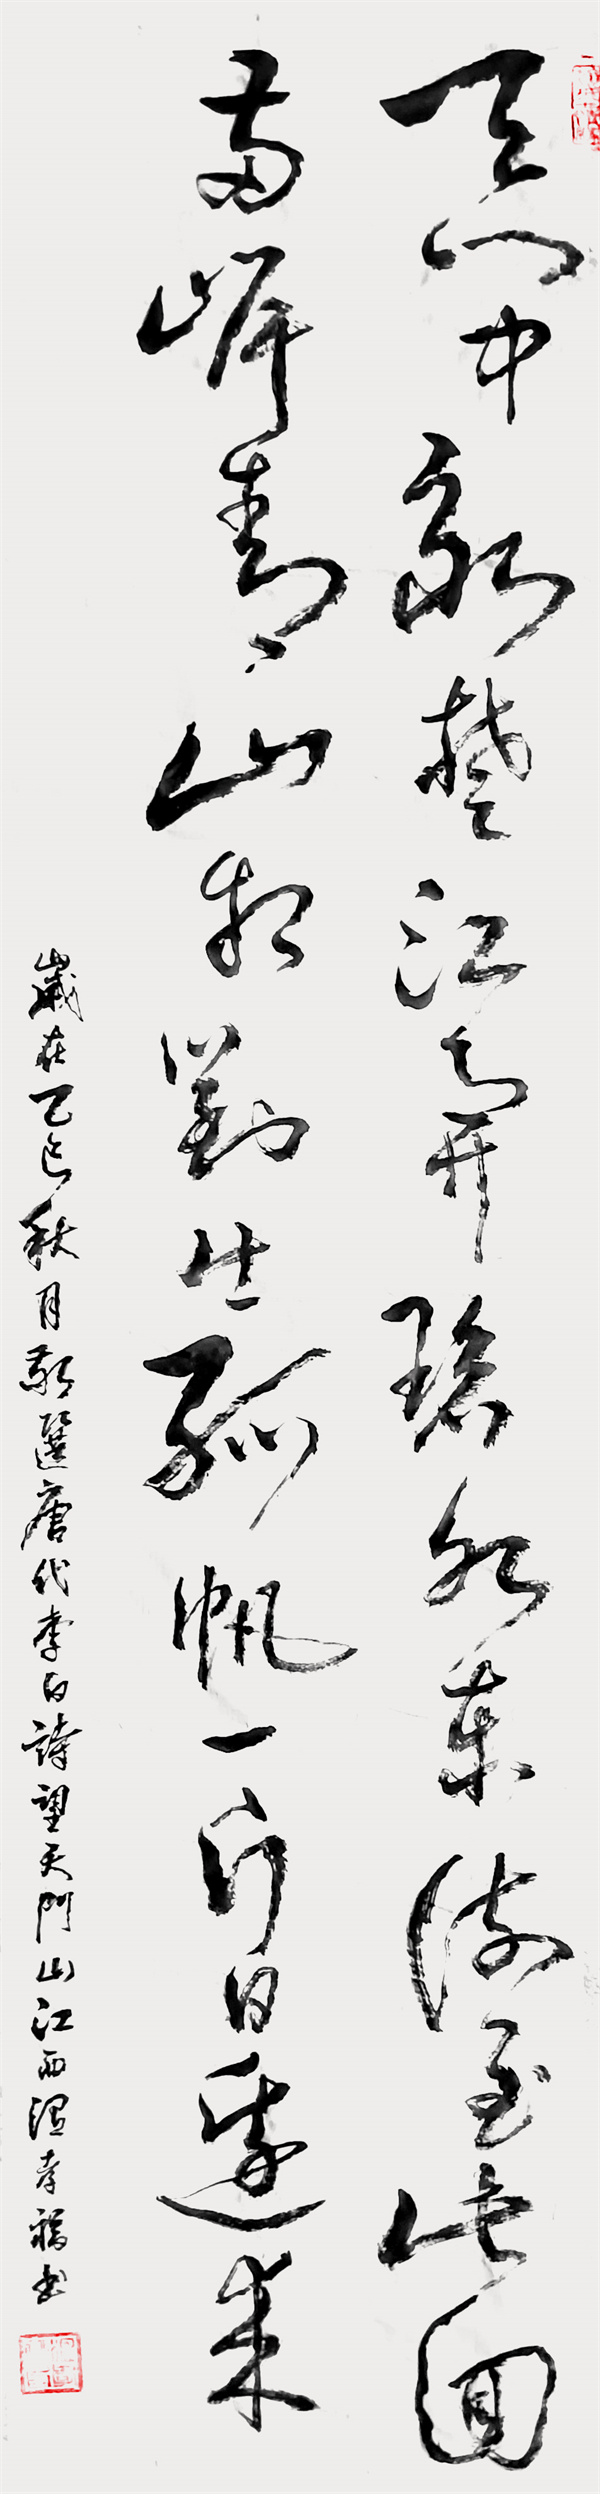 天门中断楚江开碧水东流至此回
两岸青山相对出孤帆一片日边来
歲在乙巳秋月敬選唐代李白詩望天門山江西温孝福书